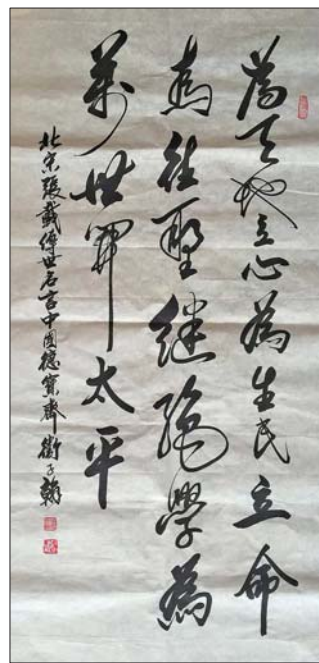 為天地立心為生民立命
為往聖繼絕學為
萬世開太平
北宋張載傳世名言中國德寶齋衛子翰